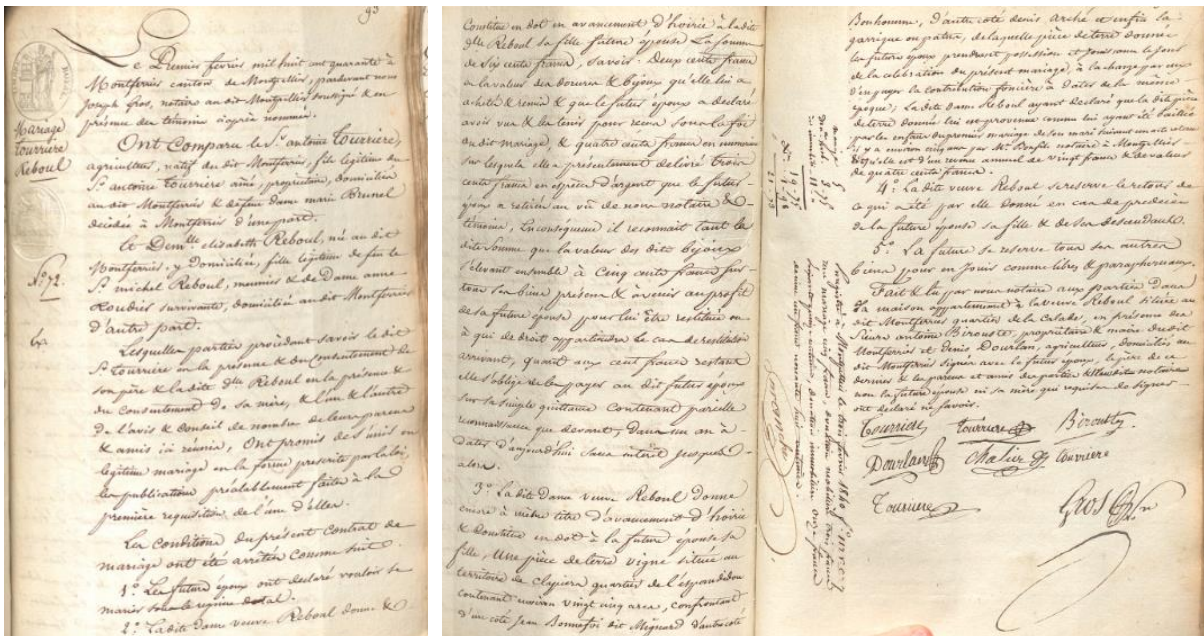 93
Le Premier février mil huit cent quarante à
Montferrier canton de Montpellier, pardevant nous
Joseph Gros, notaire audit Montpellier soussigné & en
présence des témoins ciaprès nommés.
Mariage
Tourrière
Reboul
Ont Comparu le Sr. antoine Tourrière,
agriculteur, natif dudit Montferrier, fils légitime du
Sr. antoine Tourrière ainé, propriétaire, domicilié
audit Montferrier & défunte dame marie Brunel
décédée à Montferrier d'une part.
et Demlle. elisabeth Reboul, née audit
Montferrier y domiciliée, fille légitime de feu le
No. 72.
Sr. michel Reboul, meunier & de Dame anne
Roudier survivante, domiciliée audit Montferrier
d'autre part.
Lesquelles parties procédant savoir ledit
Sr. Tourrière en la présence & du Consentement de
son père & la dite Dlle. Reboul en la présence &
du Consentement de sa mère, & l'un & l'autre
de l'avis & conseil de nombre de leurs parens
& amis ici réunis, Ont promis de s'unir en
légitime mariage en la forme prescrite par la loi,
les publications préalablement faites à la
première requisition de l'une d'elles.
Les conditions du présent contrat de
mariage ont été arrêtées comme suit.
1°. Les futurs époux ont déclaré vouloir se
marier sous le régime dotal.
2°. Ladite Dame veuve Reboul donne &
Constitue en dot en avancement d'hoirie à ladite
Dlle Reboul sa fille future épouse La somme
de Six cents francs, savoir: Deux cents francs
en la valeur des dorures & bijoux qu'elle lui a
achetés & remis & que le futur époux a déclaré
avoir vus & les tenir pour reçus sous la foi
du dit mariage, & quatre cents francs en numéraire
sur lesquels elle a présentement délivré trois
cents francs en espèces d'argent que le futur
époux a retirés au vû de nous notaire &
témoins, En conséquence il reconnait tant la
dite somme que la valeur des dits bijoux
s'élevant ensemble à Cinq cents francs sur
tous ses biens présens & à venir au profit
de sa future épouse pour lui être restitués ou
à qui de droit appartiendra le cas de restitution
arrivant, quant aux cent francs restans
elle s'oblige de les payer au dit futur époux
sur sa simple quittance contenant pareille
reconnaissance que devant, Dans un an à
dater d'aujourd'hui sans intérêt jusques
alors.
3°. Ladite Dame veuve Reboul donne
encore à même titre d'avancement d'hoirie
& Constitue en dot à la future épouse sa
fille, Une pièce de terre vigne située au
territoire de clapiers quartier de l'espandidou
contenant environ vingt cinq ares, confrontant
d'un côté Jean Bonnefoi dit Mignard d'autre côté
Bonhomme, d'autre côté denis Arché et enfin la
garrigue ou patus, de laquelle pièce de terre donnée
la future épouse prendront possession et jouissance le jour
de la célébration du présent mariage, à la charge par eux
d'en payer la contribution foncière à dater de la même
époque; La dite dame Reboul ayant déclaré que la dite pièce
de terre donnée lui est provenue comme lui ayant été baillée
par les enfans du premier mariage de son mari suivant un acte retenu
il y a environ cinq ans par Me. notaire à Montpellier
& qu'elle est d'un revenu annuel de vingt francs & de valeur
de quatre cents francs.
4°. La dite veuve Reboul se réserve le retour de
ce qui a été par elle donné en cas de prédécès
de la future épouse sa fille & de ses descendants.
5°. La future se réserve tous ses autres
biens pour en jouir comme libres & paraphernaux.
Fait & lu par nous notaire aux parties Dans
la maison appartenant à la veuve Reboul située au
dit Montferrier quartier de la Calade, en présence des
Sieurs antoine Birouste, propriétaire & maire dudit
Montferrier et Denis Dourlan, agriculteur, domiciliés au
dit Montferrier Signés avec le futur époux, le père de ce
dernier & les parens et amis des parties & nousdit notaire
non la future épouse ni sa mère qui requises de signer
ont déclaré ne savoir.
Tourriere Tourriere Birouste
Dourlan Chalier Tourriere
Tourriere Gros